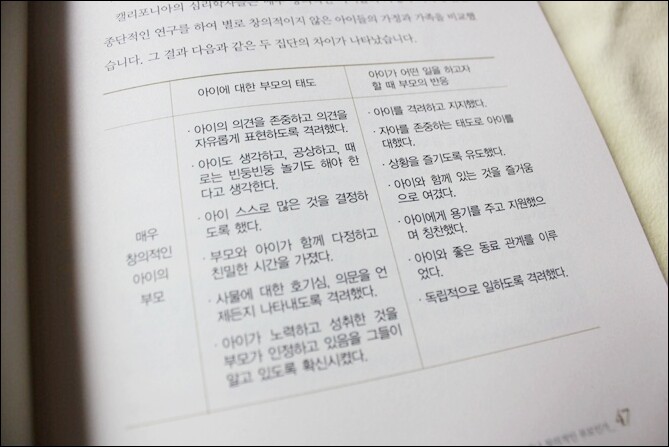 캘리포니아의 심리학자들은
중단적인 연구를 하여 별로 창의적이지 않은 아이들의 가정과 가족을 비교했
습니다. 그 결과 다음과 같은 두 집단의 차이가 나타났습니다.
아이에 대한 부모의 태도
아이가 어떤 일을 하고자
할 때 부모의 반응
매우
창의적인
아이의
부모
· 아이의 의견을 존중하고 의견을
자유롭게 표현하도록 격려했다.
· 아이도 생각하고, 공상하고, 때
로는 빈둥빈둥 놀기도 해야 한
다고 생각한다.
· 아이 스스로 많은 것을 결정하
도록 했다.
· 부모와 아이가 함께 다정하고
친밀한 시간을 가졌다.
· 사물에 대한 호기심, 의문을 언
제든지 나타내도록 격려했다.
· 아이가 노력하고 성취한 것을
부모가 인정하고 있음을 그들이
알고 있도록 확신시켰다.
· 아이를 격려하고 지지했다.
· 자아를 존중하는 태도로 아이를
대했다.
· 상황을 즐기도록 유도했다.
· 아이와 함께 있는 것을 즐거움
으로 여겼다.
· 아이에게 용기를 주고 지원했으
며 칭찬했다.
· 아이와 좋은 동료 관계를 이루
었다.
· 독립적으로 일하도록 격려했다.
47